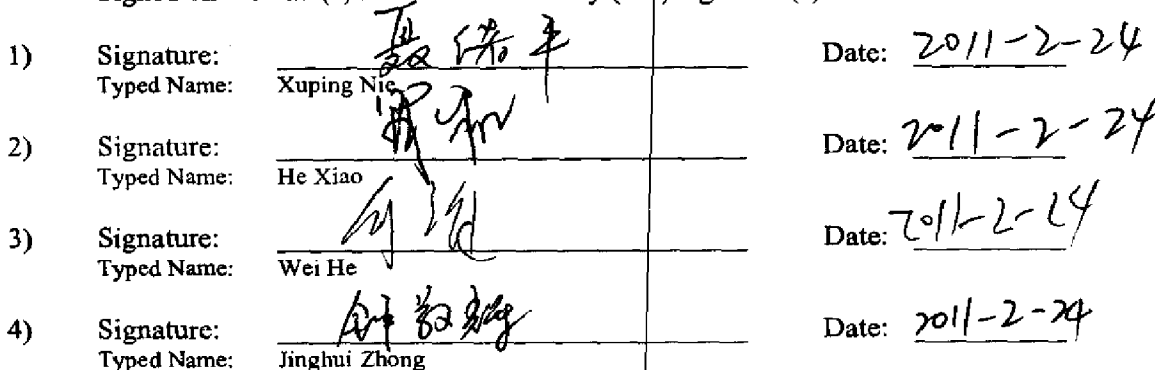 1) Signature: 聂绪平 Date: 2011-2-24
Typed Name: Xuping Nie
2) Signature: Date: 2011-2-24
Typed Name: He Xiao
3) Signature: Date: 2011-2-24
Typed Name: Wei He
4) Signature: 钟敬辉 Date: 2011-2-24
Typed Name: Jinghui Zhong